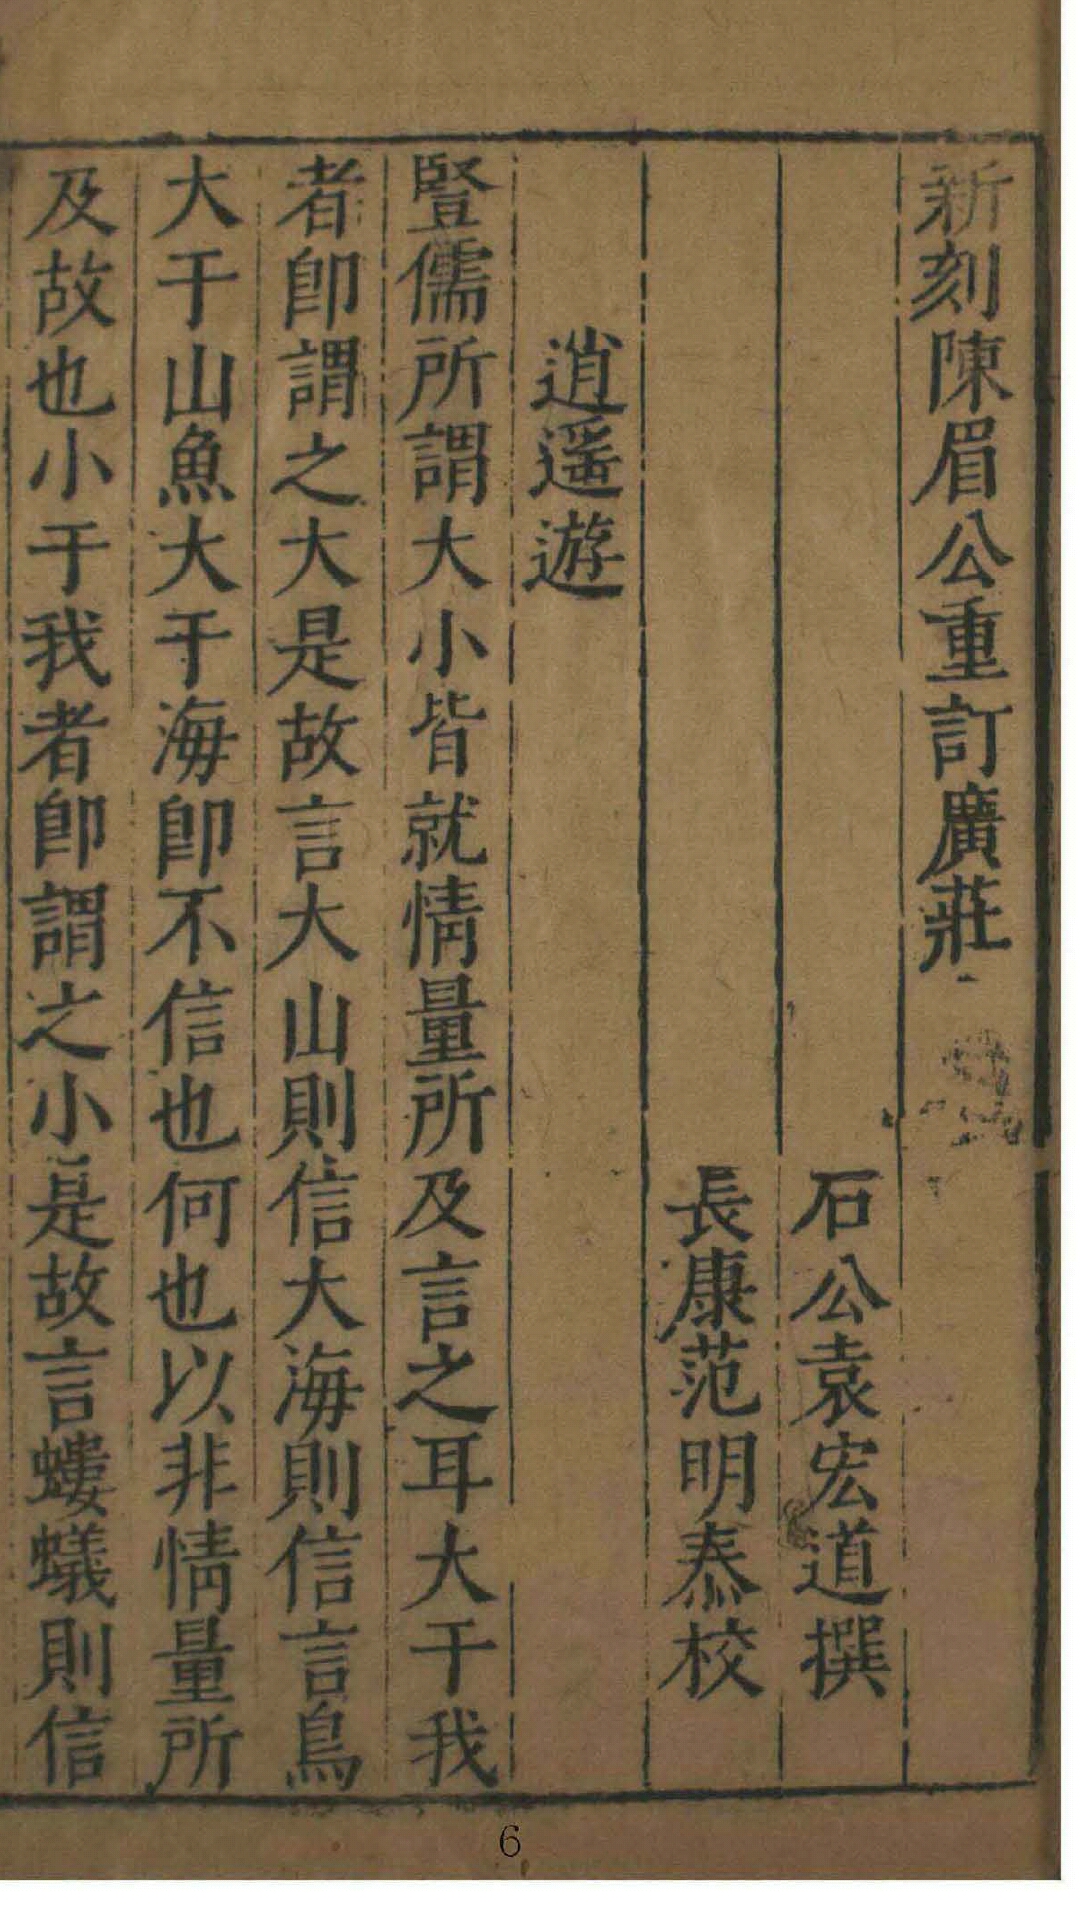 新刻陳眉公重訂廣莊
石公袁宏道撰
長康范明泰校
逍遙遊
豎儒所謂大小皆就情量所及言之耳大于我
者卽謂之大是故言大山則信大海則信言鳥
大于山魚大于海卽不信也何也以非情量所
及故也小于我者卽謂之小是故言螻蟻則信
6